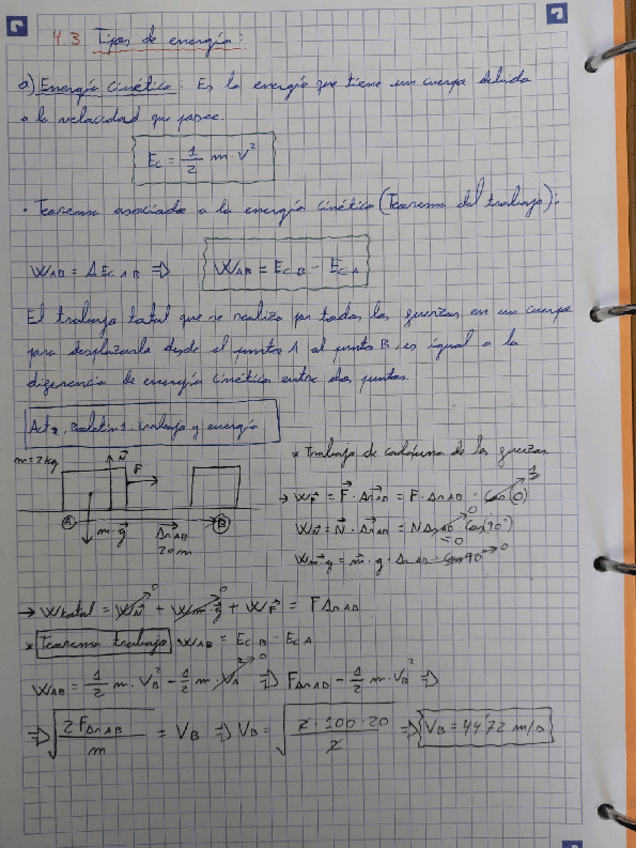 4.3 Tipos de energía:
a) Energía Cinética: Es la energía que tiene un cuerpo debido
a la velocidad que posee.
Ec = 1/2 m · v²
· Teorema asociado a la energía cinética (Teorema del trabajo):
WAB = ΔEc AB ⇒ WAB = Ec B - Ec A
El trabajo total que se realiza por todas las fuerzas en un cuerpo
para desplazarlo desde el punto A al punto B, es igual a la
diferencia de energía cinética entre dos puntos.
Act 2. Boletín 1. trabajo y energía
m = 2 kg
N
F
A
B
m · g
ΔrAB
20 m
* trabajo de cada una de las fuerzas
→ WF = F · ΔrAB = F · ΔrAB · Cos(0) 1
WN = N · ΔrAB = N ΔrAB Cos(90°) 0
= 0
Wm·g = m · g · ΔrAB = cos 90 → 0
→ Wtotal = WN 0 + Wm·g 0 + WF = F ΔrAB
* Teorema trabajo WAB = Ec B - Ec A
WAB = 1/2 m · VB² - 1/2 m · VA² 0 ⇒ F ΔrAB - 1/2 m · VB² ⇒
⇒ √(2 F ΔrAB / m) = VB ⇒ VB = √(2 · 100 · 20 / 2) ⇒ VB = 44'72 m/s